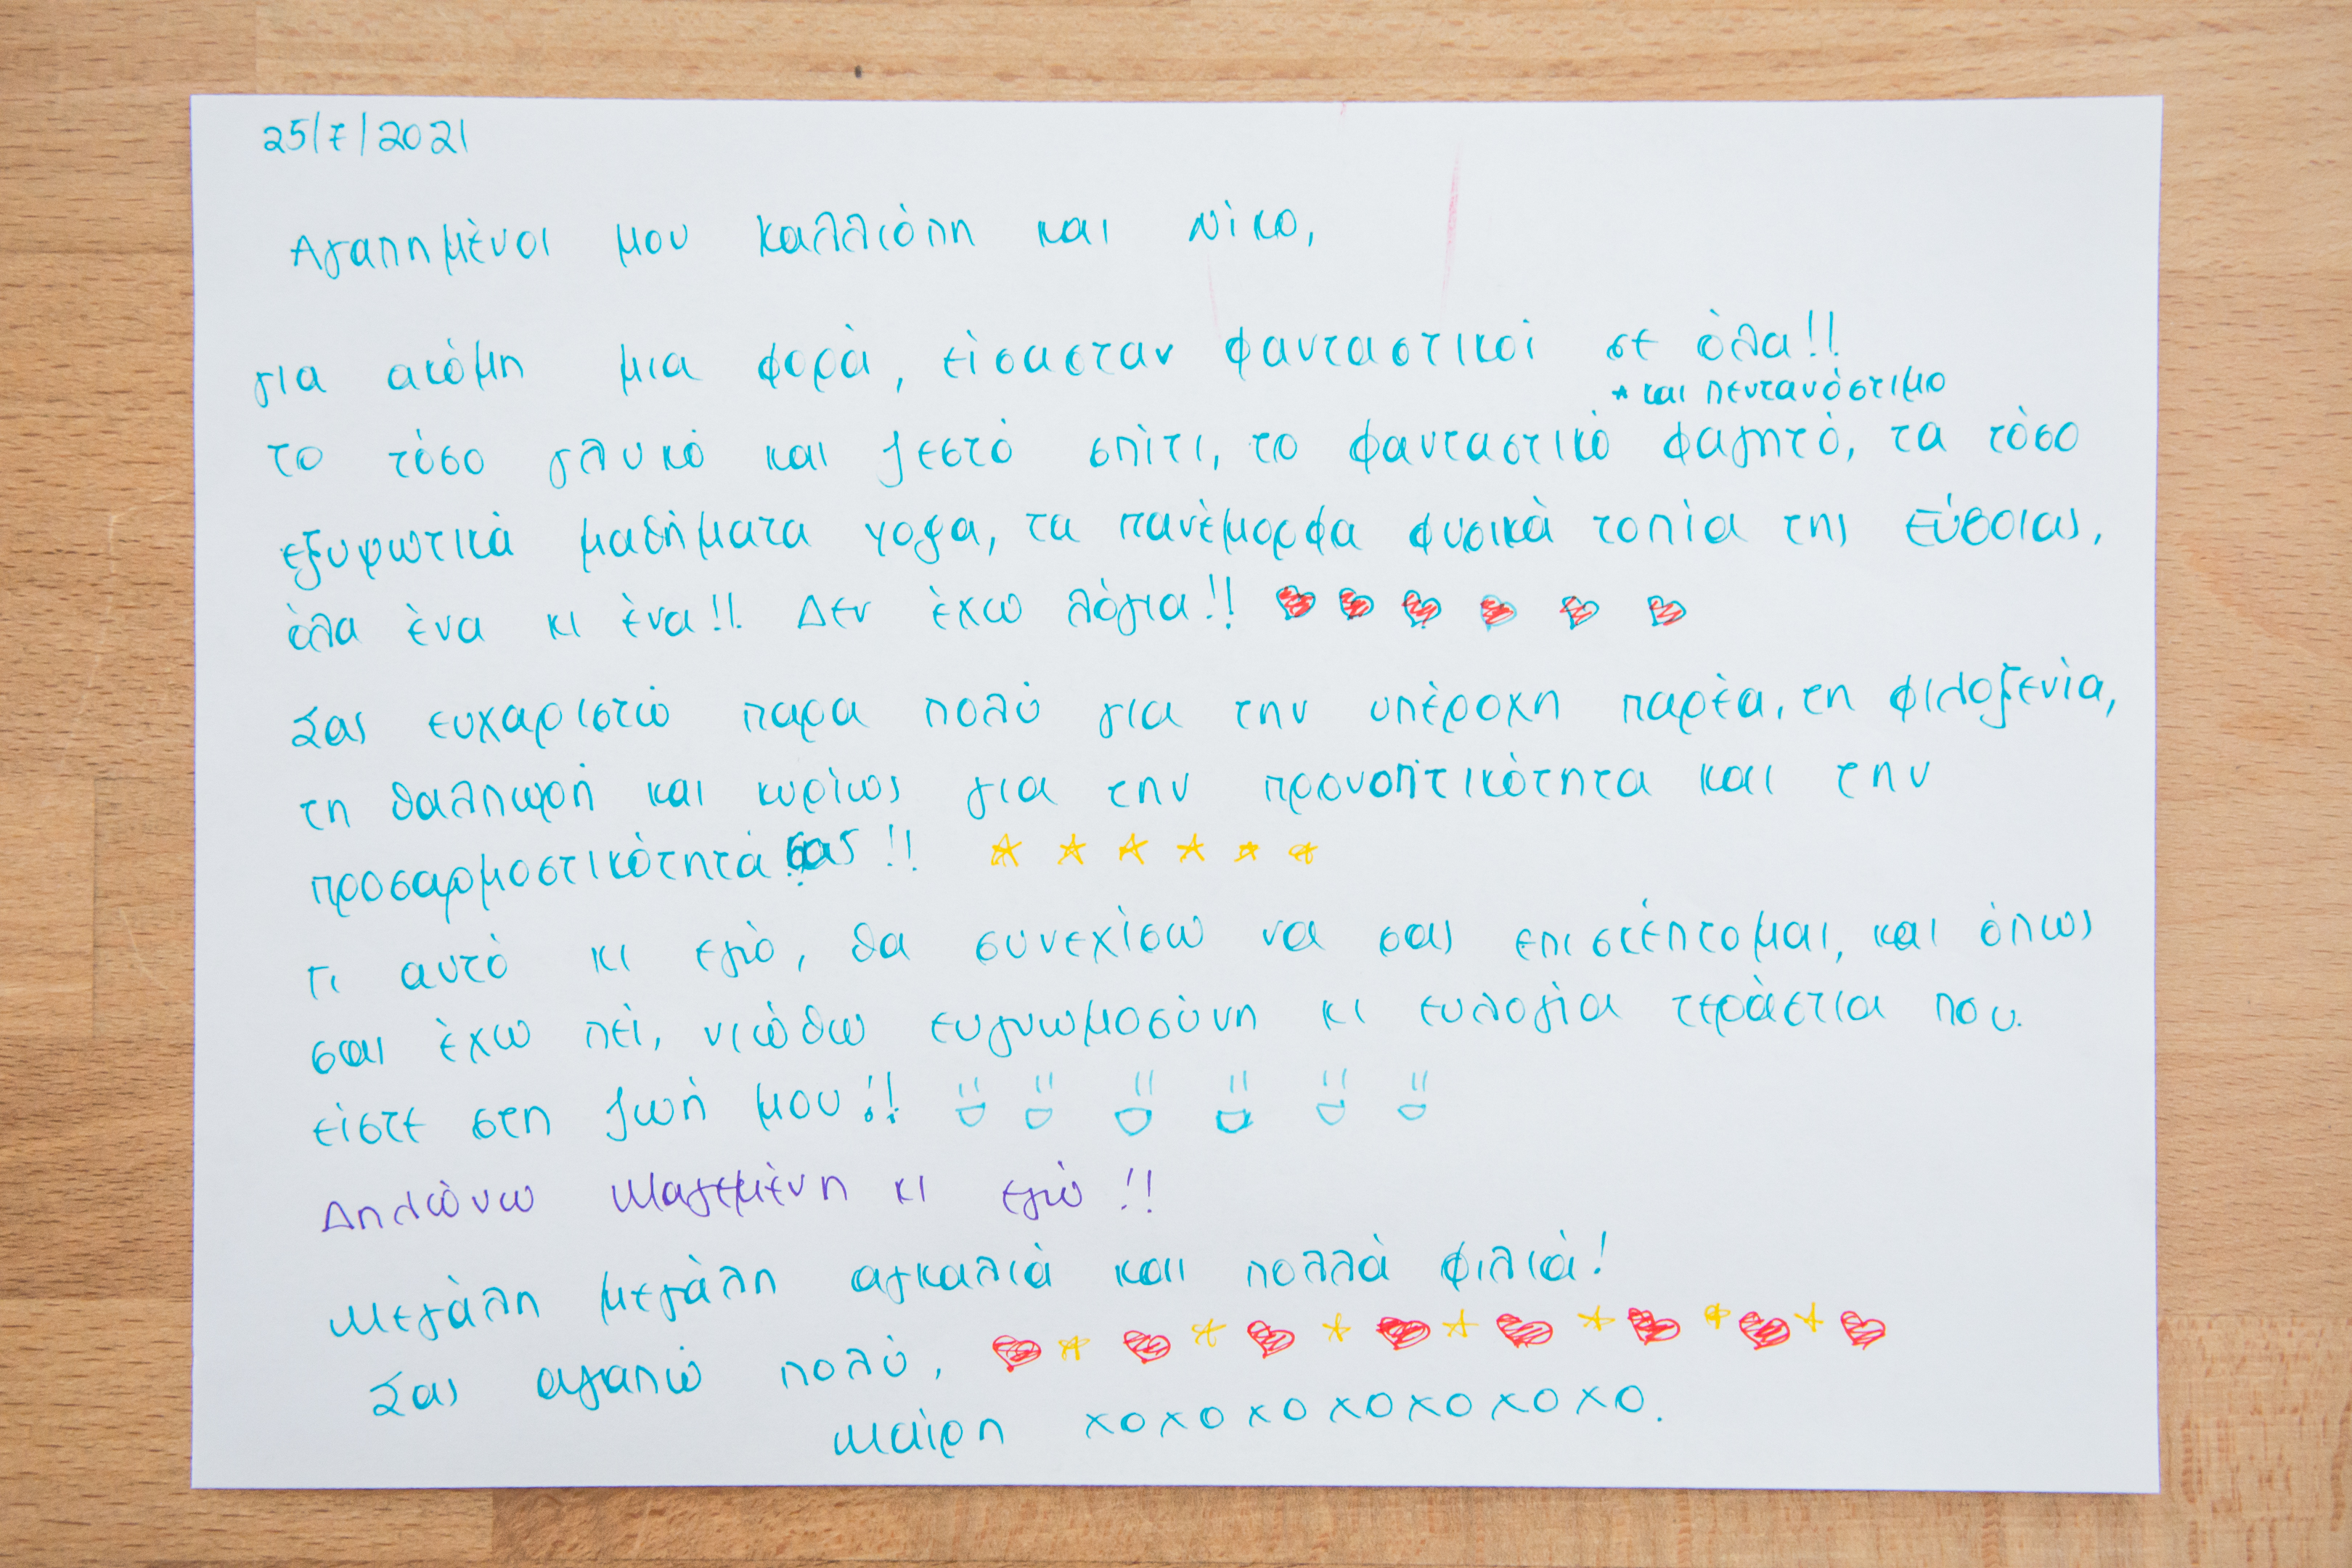 25/7/2021
Αγαπημένοι μου Καλλιόπη και Νίκο,
για ακόμη μια φορά, είσασταν φανταστικοί σε όλα!!
* και πεντανόστιμο
το τόσο γλυκό και ζεστό σπίτι, το φανταστικό φαγητό, τα τόσο
εξυψωτικά μαθήματα yoga, τα πανέμορφα φυσικά τοπία της Εύβοιας,
όλα ένα κι ένα!! Δεν έχω λόγια!!
Σας ευχαριστώ παρα πολύ για την υπέροχη παρέα, τη φιλοξενία,
τη θαλπωρή και κυρίως για την προνοπτικότητα και την
προσαρμοστικότητά σας!!
Γι αυτό κι εγώ, θα συνεχίσω να σας επισκέπτομαι, και όπως
σαι έχω πεί, νιώθω ευγνωμοσύνη κι ευλογία τεράστια που
είστε στη ζωή μου!!
Δηλώνω Μαγεμένη κι εγώ!!
Μεγάλη μεγάλη αγκαλιά και πολλά φιλιά!
Σας αγαπώ πολύ,
Μαίρη xoxoxoxoxoxoxo.